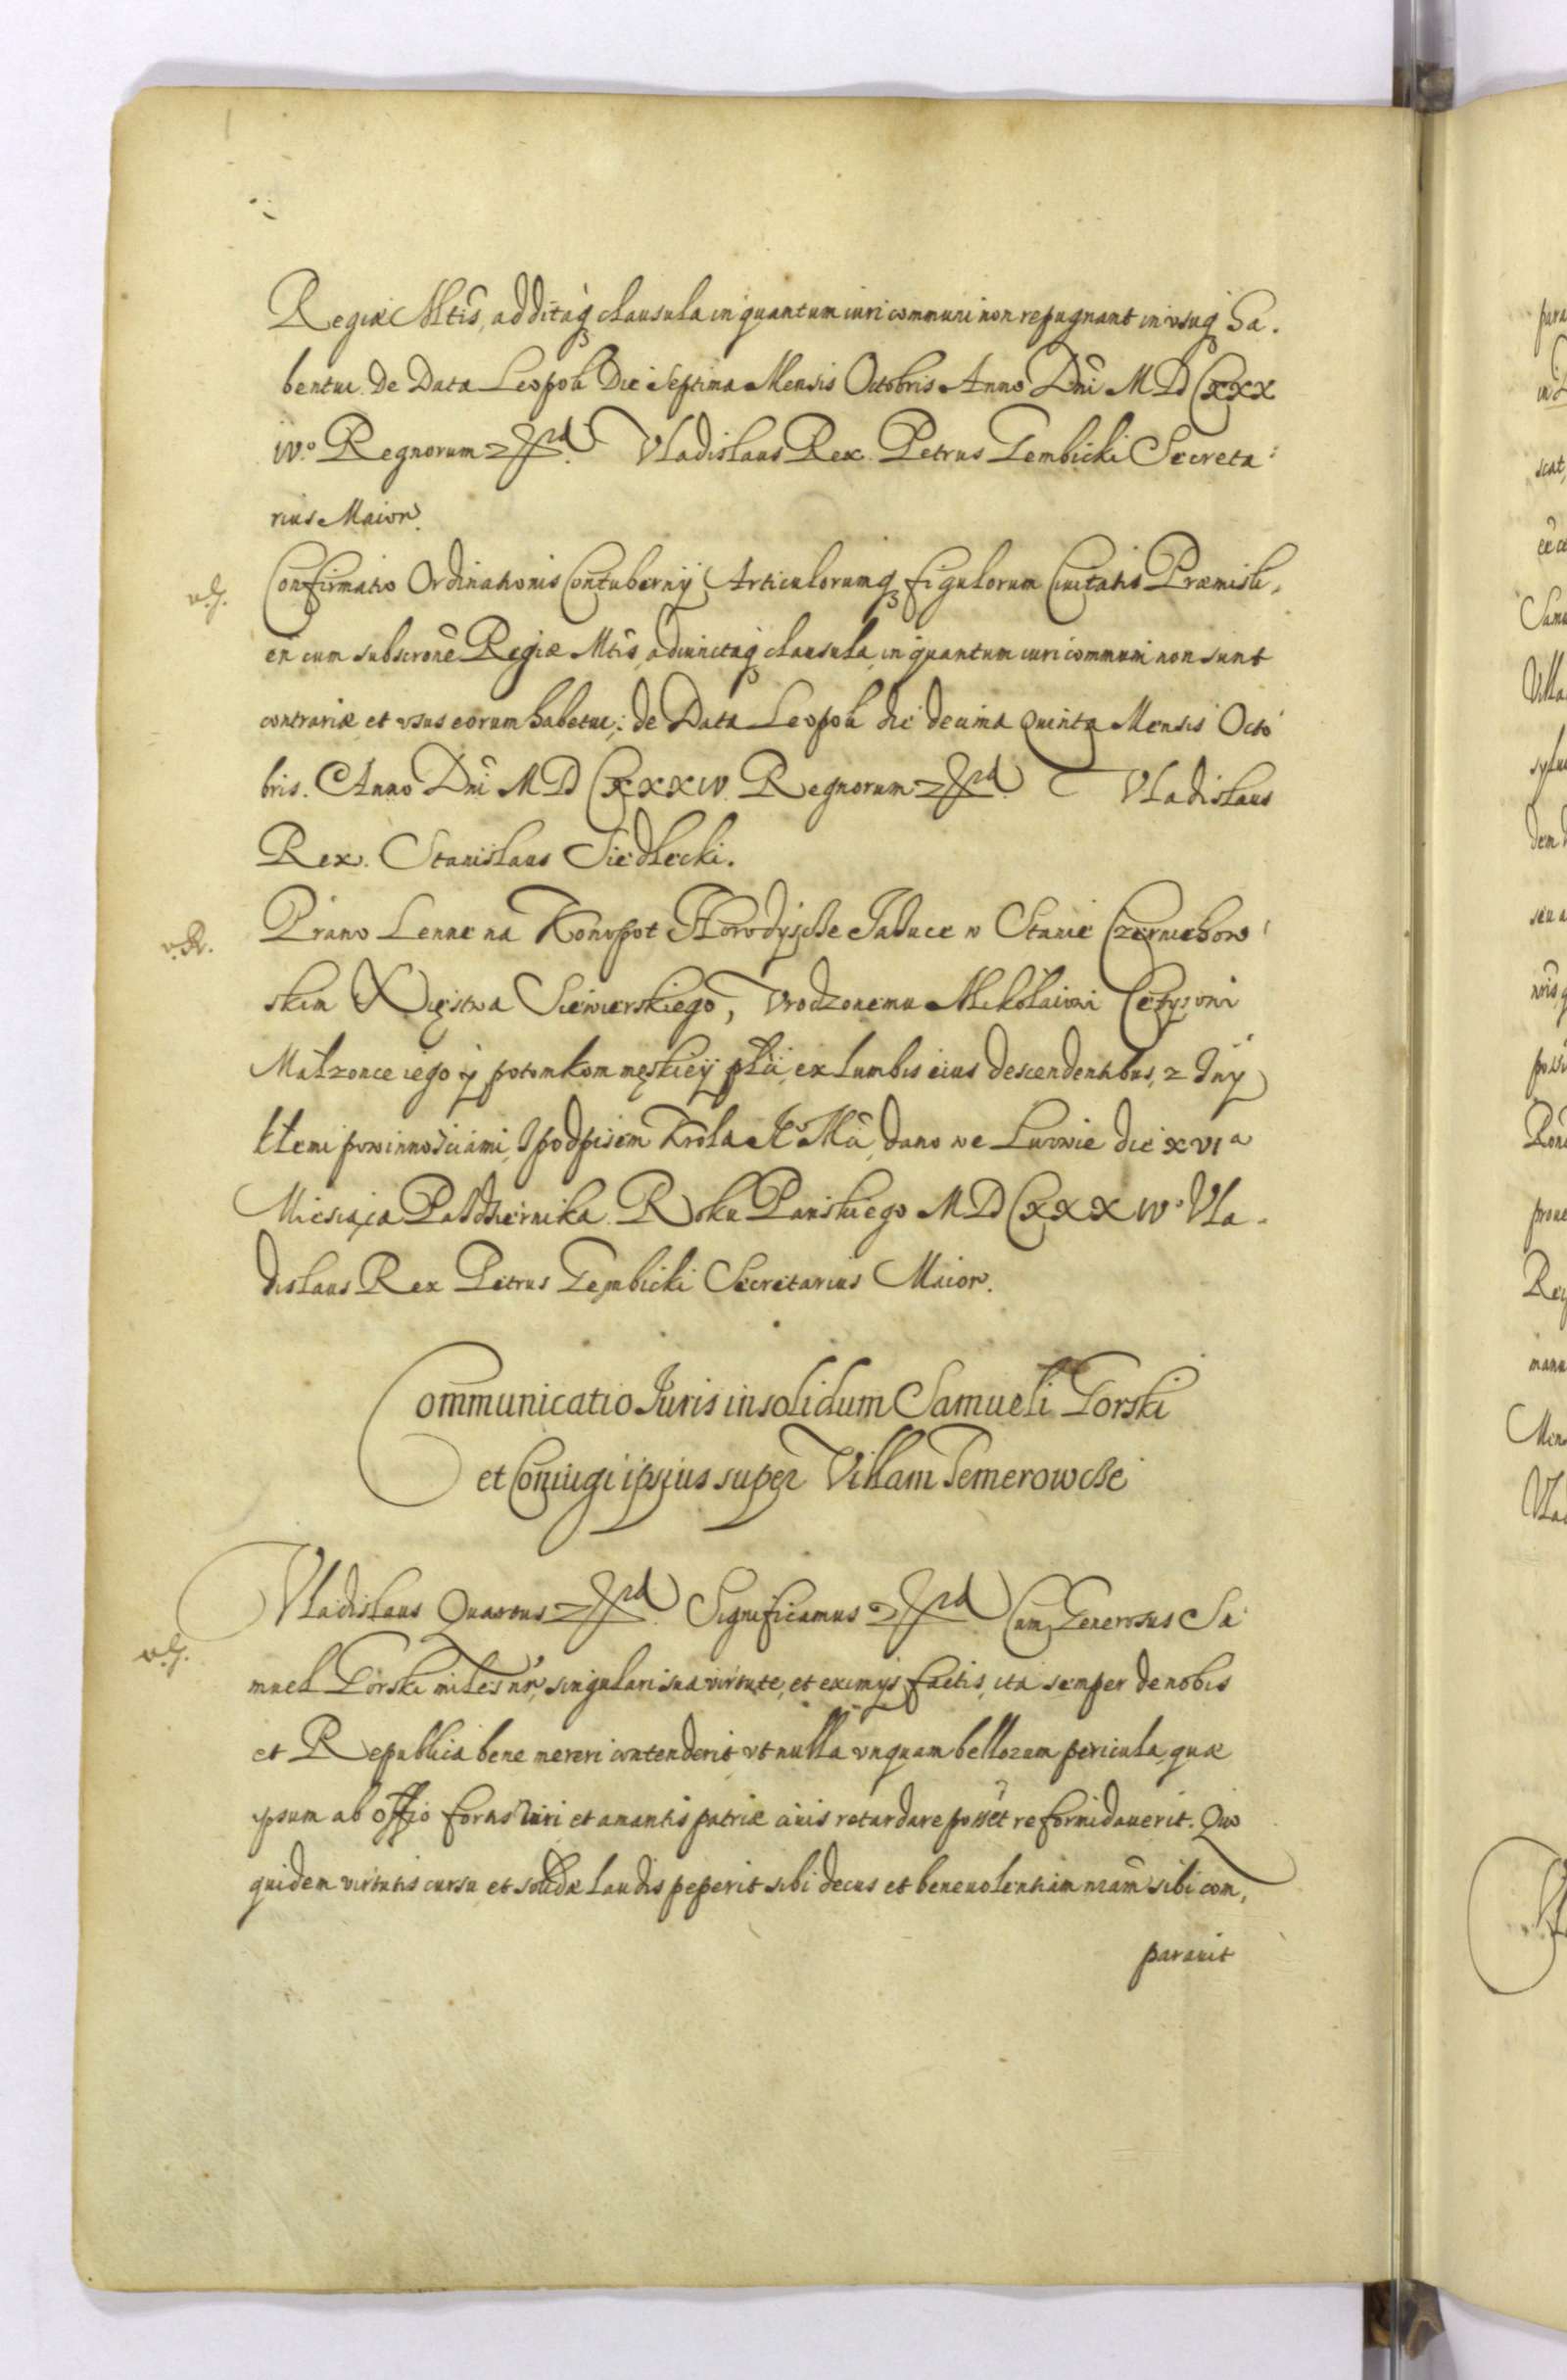 Regiæ Mtis, additaq clausula in quantum iuri communi non repugnant in usuq ha.
bentur. De Data Leopoli Die Septima Mensis Octobris Anno Dni MDCXXX
iv.o Regnorum Vladislaus Rex. Petrus Gembicki Secreta:
rius Maior.
Confirmatio Ordinationis Contubernij Articulorumq figulorum Ciuitatis Præmisli,
en cum subscrone Regiæ Mtis, adiunctaq clausula, in quantum iuri communi non sunt
contrariæ et usus eorum habetur; de Data Leopoli die decima quinta Mensis Octo
bris. Anno Dni MDCXXXIV. Regnorum Vladislaus
Rex. Stanislaus Siedlecki.
Prawo Lenne na Konopot Horodyszcze Jaduce w Stanie Czerniehow
skim Xięstwa Siewierskiego, Vrodzonemu Mikołaiowi
Małzonce iego y potomkom męskiey płci, ex lumbis eius descendentibus, z Iny
kłemi powinnościami, Spodpisem Krola Je Mci, dano we Lwowie die xvia
Miesiąca Pazdziernika. Roku Panskiego MDCXXXIVo Vla.
dislaus Rex Petrus Gembicki Secretarius Maior.
Communicatio Juris insolidum Samueli Gorski
et Coniugi ipsius super Villam Temerowcze
Vladislaus Quartus Significamus Cum Generosus Sa
muel Gorski miles nr, singulari sua virtute, et eximijs factis, ita semper de nobis
et Republica bene mereri contenderit, vt nulla vnquam bellorum pericula, quæ
ipsum ab offio fortis viri et amantis patriæ ciuis retardare possēt reformidauerit. Quo
quidem virtutis cursu et solidæ laudis peperit sibi decus et beneuolentiam nram sibi com,
parauit